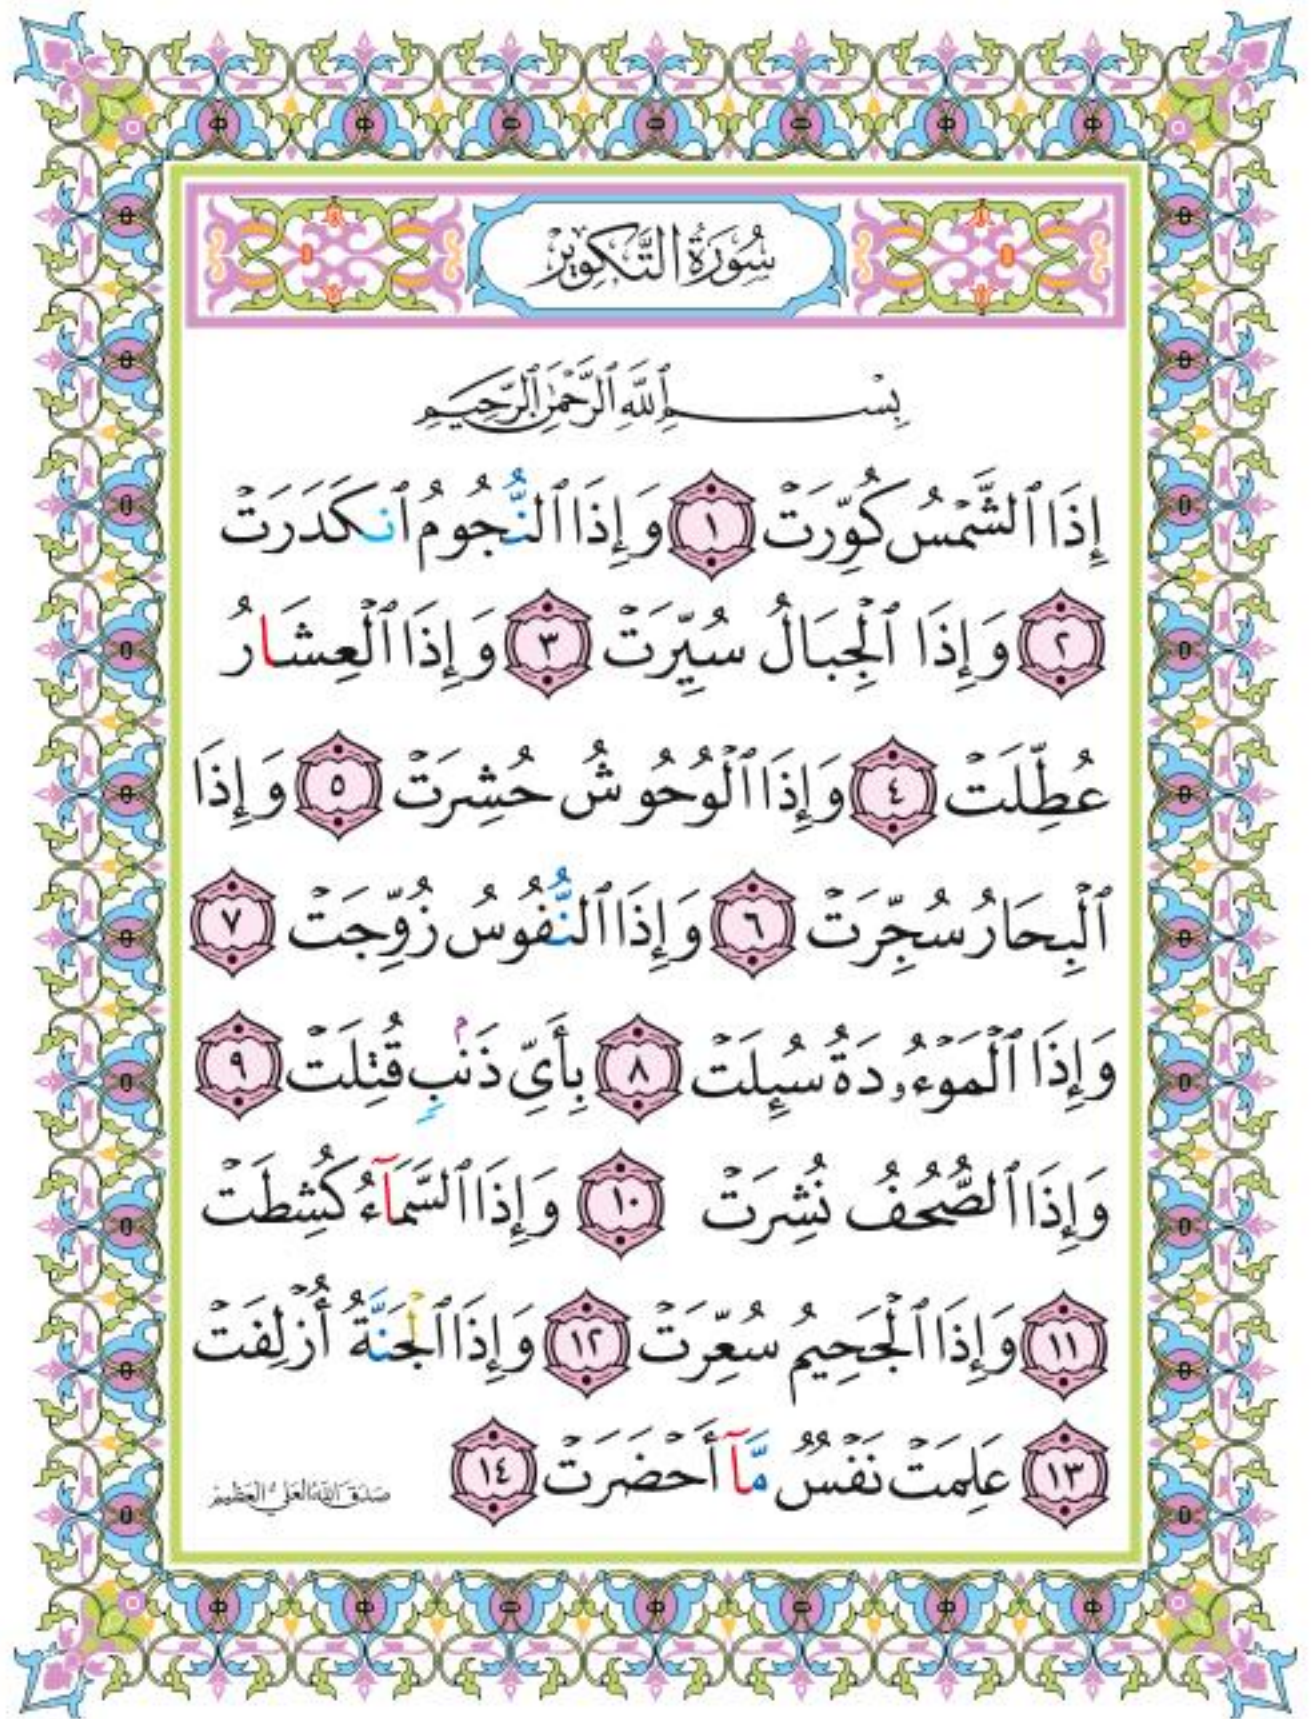 سُورَةُ التَّكْوِيرِ
بِسْمِ ٱللَّهِ ٱلرَّحْمَٰنِ ٱلرَّحِيمِ
إِذَا ٱلشَّمْسُ كُوِّرَتْ ١ وَإِذَا ٱلنُّجُومُ ٱنكَدَرَتْ
٢ وَإِذَا ٱلْجِبَالُ سُيِّرَتْ ٣ وَإِذَا ٱلْعِشَارُ
عُطِّلَتْ ٤ وَإِذَا ٱلْوُحُوشُ حُشِرَتْ ٥ وَإِذَا
ٱلْبِحَارُ سُجِّرَتْ ٦ وَإِذَا ٱلنُّفُوسُ زُوِّجَتْ ٧
وَإِذَا ٱلْمَوْءُۥدَةُ سُئِلَتْ ٨ بِأَىِّ ذَنۢبٍ قُتِلَتْ ٩
وَإِذَا ٱلصُّحُفُ نُشِرَتْ ١٠ وَإِذَا ٱلسَّمَآءُ كُشِطَتْ
١١ وَإِذَا ٱلْجَحِيمُ سُعِّرَتْ ١٢ وَإِذَا ٱلْجَنَّةُ أُزْلِفَتْ
١٣ عَلِمَتْ نَفْسٌ مَّآ أَحْضَرَتْ ١٤ صَدَقَ اللهُ العَلِيُّ العَظِيمُ